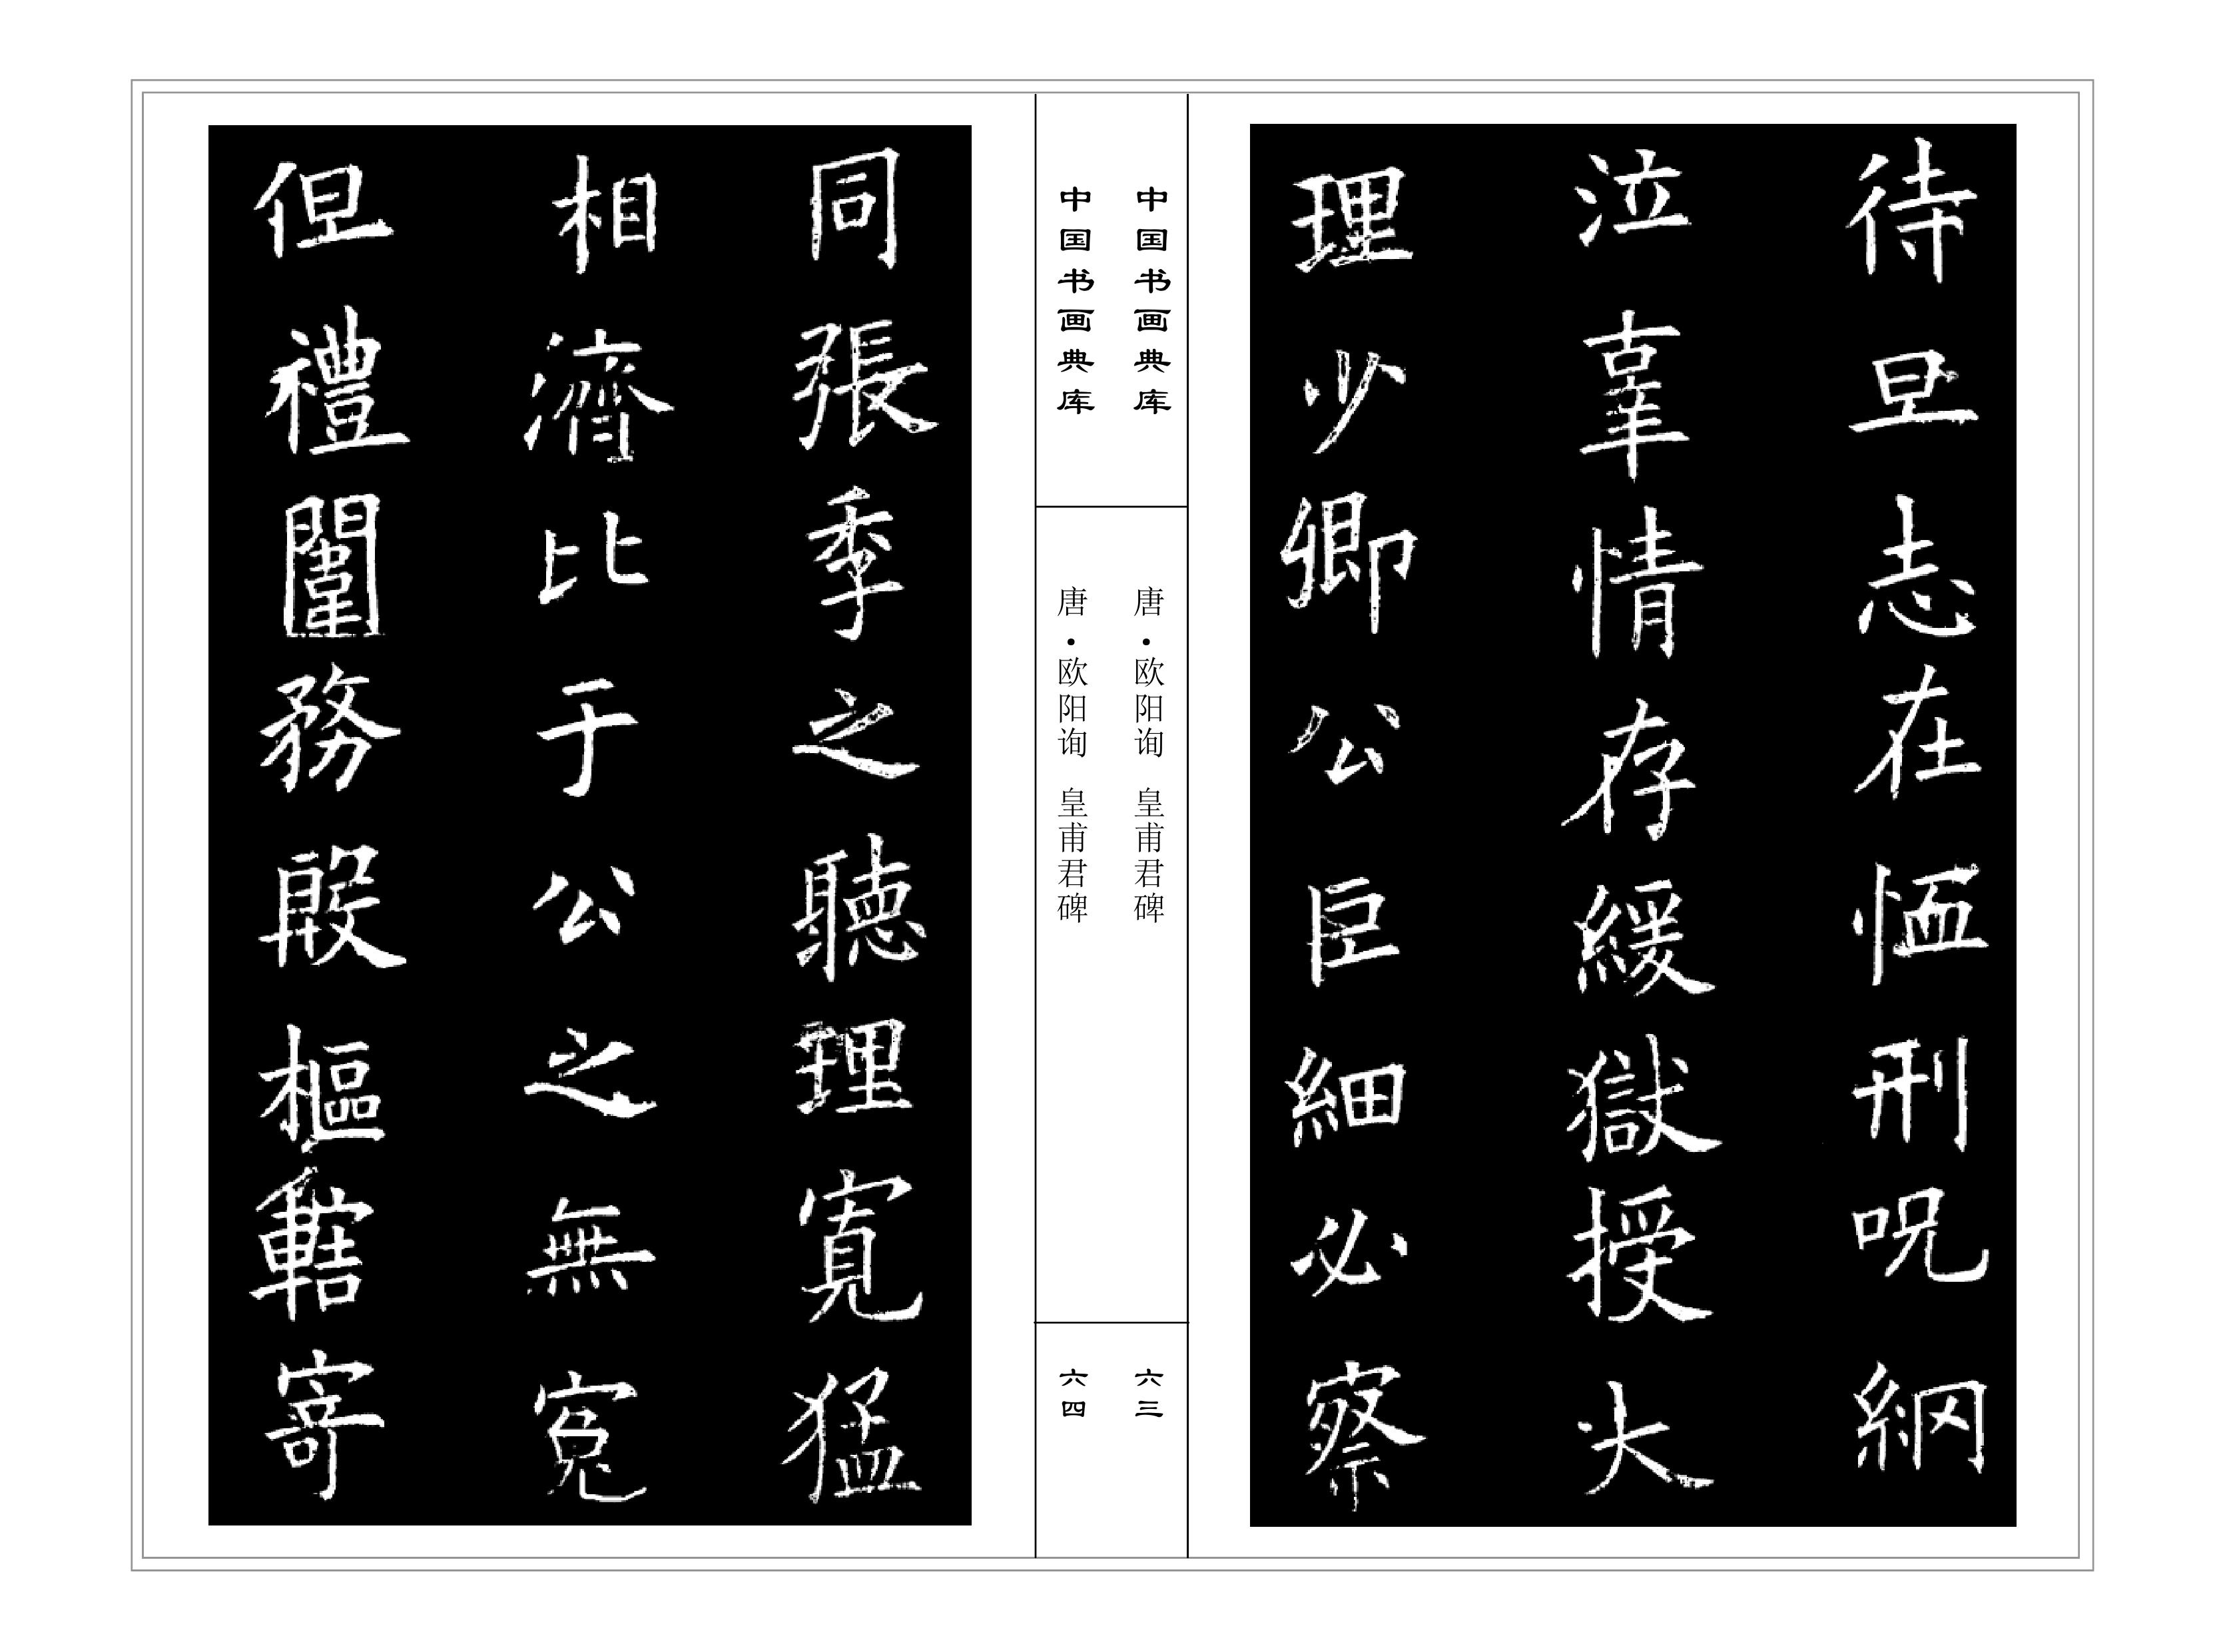 待旦志在恤刑呪網
泣辜情存緩獄授大
理少卿公巨細必察
中国书画典库
唐·欧阳询 皇甫君碑
六三
中国书画典库
唐·欧阳询 皇甫君碑
六四
同張季之聽理寬猛
相濟比于公之無冤
但禮闈務殷樞轄寄